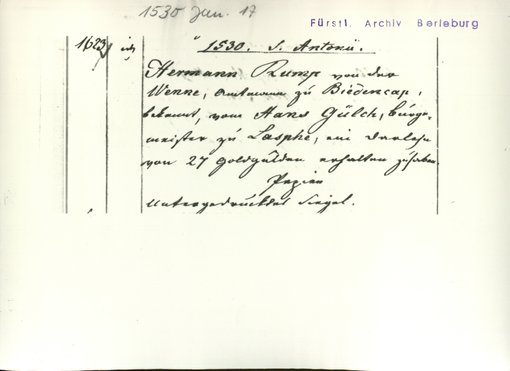 1530 Jan. 17
Fürstl. Archiv Berleburg
1623
1530. S. Antonii.
Hermann Rump von der
Wenne, Amtmann zu Biedencap,
bekennt, vom Hans Gülch, Bürge-
meister zu Lasphe, ein Darlehn
von 27 Goldgulden erhalten zu haben.
Papier
Untergedrücktes Siegel.